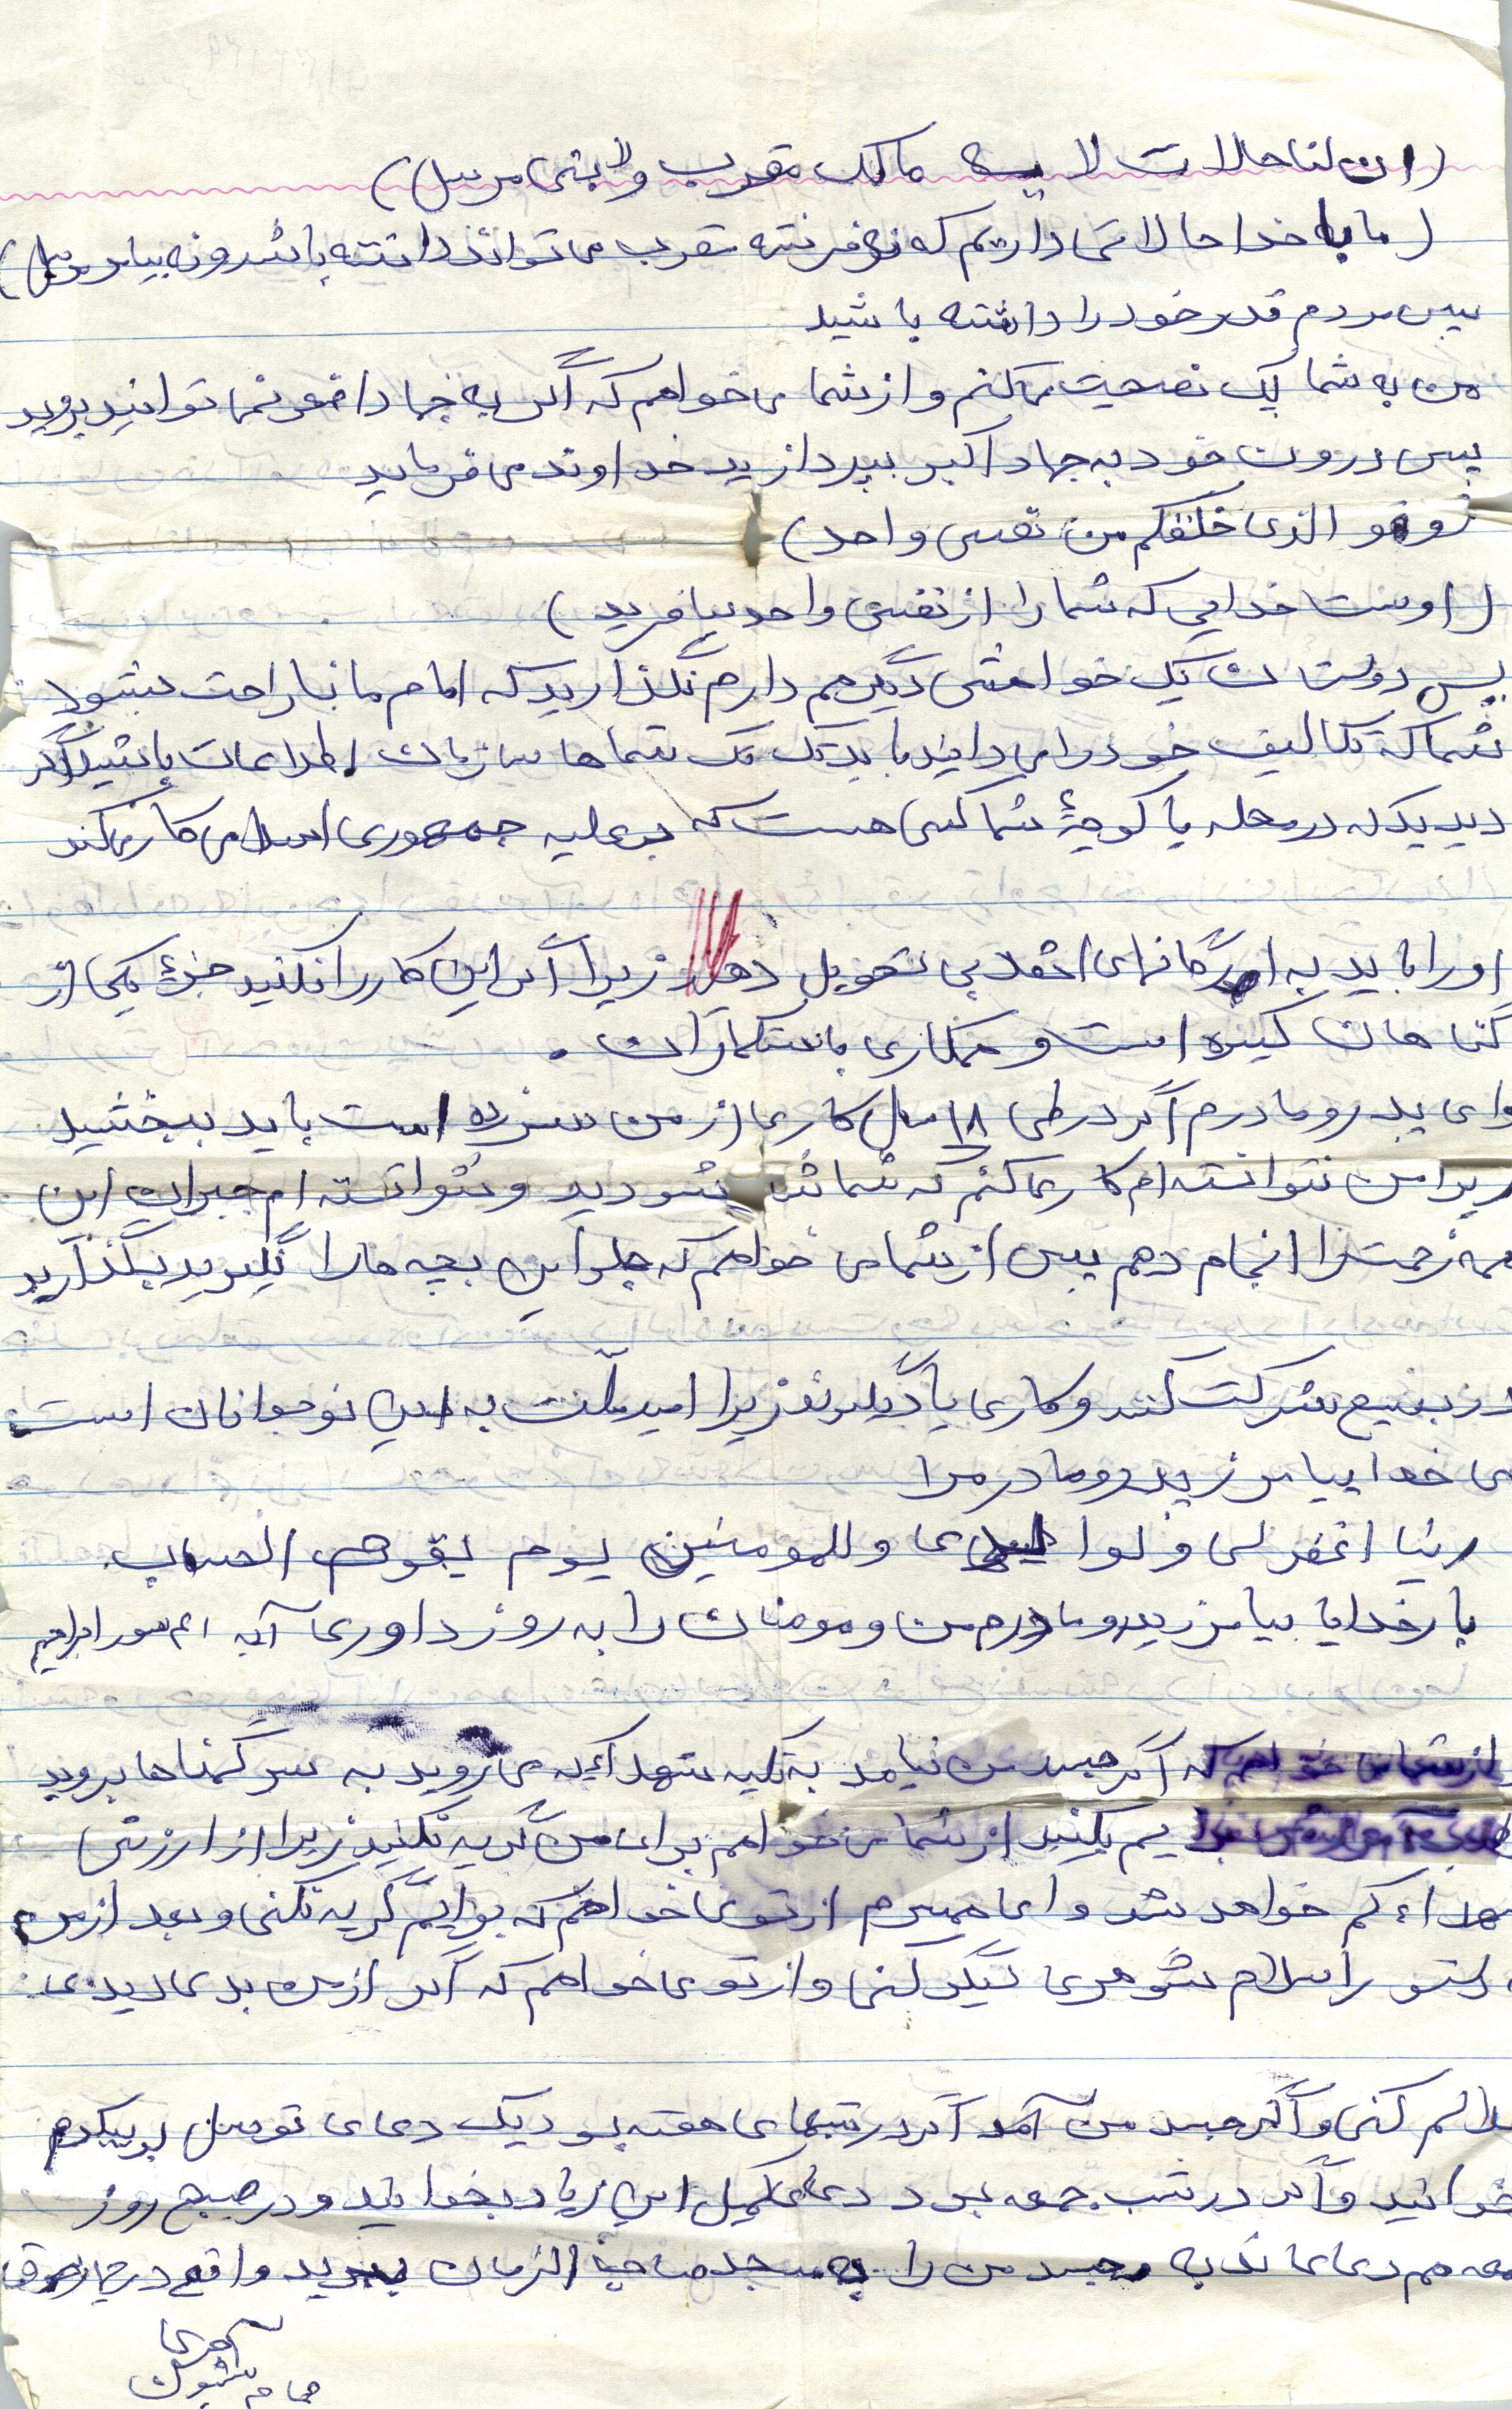 (ان لنا حالات لا یسه ماکک مقرب ولا بنی مرسل)
(ما با خدا حالاتی داریم که نه فرشته مقرب می تواند داشته باشد و نه پیامبر مرسل)
پس مردم قدر خود را داشته باشید
من به شما یک نصحیت می کنم و از شما می خواهم که اگر به جهاد اصغر نمی توانید بروید
پس درون خود به جهاد اکبر بپردازید خداوند می فرماید
(وهو الذی خلقکم من نفس واحد)
(اوست خدایی که شما را از نفس واحد بیافرید)
پس دوستان یک خواهشی دیگر هم دارم نگذارید که امام ما ناراحت بشود
شما که تکالیف خود را می دانید باید تک تک شماها سازمان اطلاعات باشید اگر
دیدید که در محله یا کوچهٔ شما کسی هست که بر علیه جمهوری اسلامی کار میکند
او را باید به ارگانهای انقلابی تحویل دهید زیرا اگر این کار را نکنید جزء یکی از
گناهان کبیره است و همکاری با ستمکاران .
وای پدر و مادرم اگر در طی ۱۸ سال کاری از من سر زده است باید ببخشید
زیرا من نتوانسته ام کاری کنم که شما شود دید و نتوانسته ام جبران این
همه زحمت را انجام دهم پس از شما می خواهم که جلو این بچه ها را نگیرید بگذارید
در بسیج شرکت کنند و کاری یاد گیرند زیرا امید ملت به این نوجوانان است
خدا بیامرز پدر و مادر مرا
ربنا اغفرلی ولوا لدی وللمومنین یوم یقوم الحساب
بار خدایا بیامرز پدر و مادرم من و مومنان را به روز داوری آیه ۴۱ سور ابراهیم
از شما می خواهم که اگر جسد من نیامد به تکیه شهدا که می روید به سر گمنامها بروید
طلب آمرزش برایم بکنید از شما می خواهم برای من گریه نکنید زیرا از ارزش
شهداء کم خواهد شد وای همسرم از تو می خواهم که برایم گریه نکنی و بعد از من
دستور اسلام شوهری دیگر کنی و از تو می خواهم که اگر از من بدی دیدی
حلالم کنی و اگر جسد من آمد اگر در شبهای هفته بود یک دعای توسل بر پیکرم
بخوانید و اگر در شب جمعه بود دعای کمیل ابن زیاد بخوانید و در صبح روز
جمعه هم دعای ندبه جسد من را به مسجد صاحب الزمان ببرید واقع در چهار